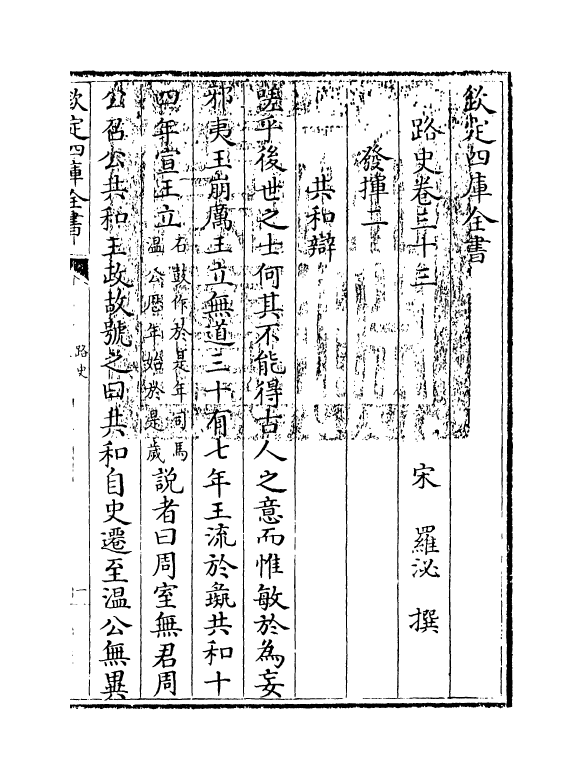 欽定四庫全書
路史卷三十三
宋 羅泌 撰
發揮二
共和辯
嗟乎後世之士何其不能得古人之意而惟敏於為妄
邪夷王崩厲王立無道三十有七年王流於彘共和十
四年宣王立石鼓作於是年司馬
溫公厯年始於是歲說者曰周室無君周
公召公共和王政故號之曰共和自史遷至溫公無異
欽定四庫全書
路史
一